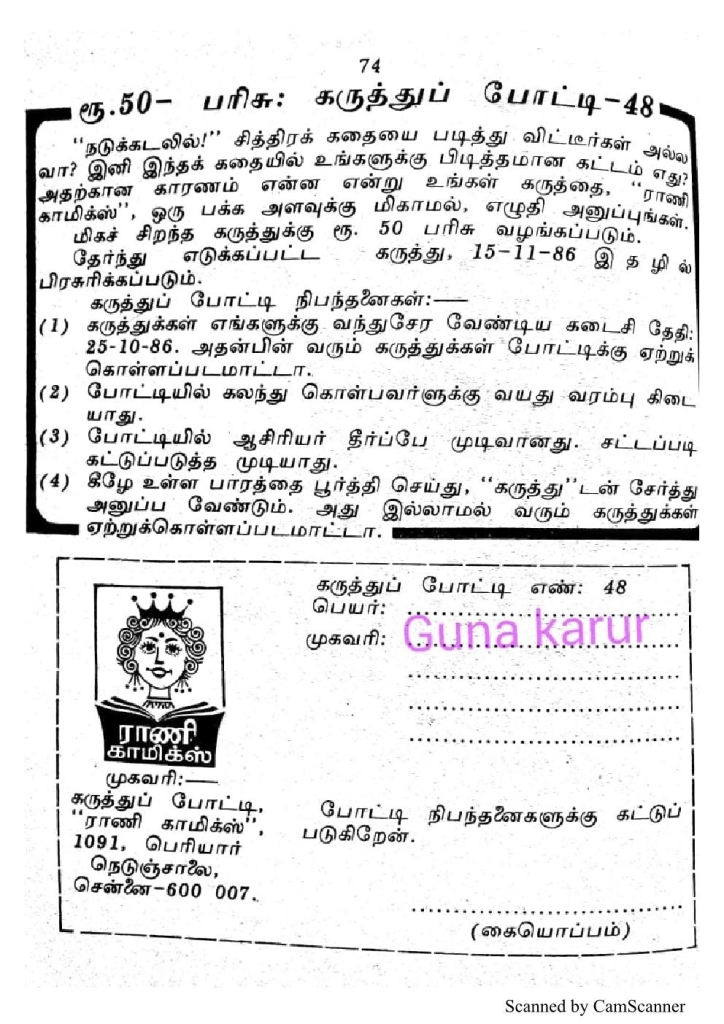 74
ரூ.50- பரிசு: கருத்துப் போட்டி-48
"நடுக்கடலில்!" சித்திரக் கதையை படித்து விட்டீர்கள் அல்ல
வா? இனி இந்தக் கதையில் உங்களுக்கு பிடித்தமான கட்டம் எது?
அதற்கான காரணம் என்ன என்று உங்கள் கருத்தை, "ராணி
காமிக்ஸ்", ஒரு பக்க அளவுக்கு மிகாமல், எழுதி அனுப்புங்கள்.
மிகச் சிறந்த கருத்துக்கு ரூ. 50 பரிசு வழங்கப்படும்.
தேர்ந்து எடுக்கப்பட்ட கருத்து, 15-11-86 இ த ழி ல்
பிரசுரிக்கப்படும்.
கருத்துப் போட்டி நிபந்தனைகள்:—
(1) கருத்துக்கள் எங்களுக்கு வந்துசேர வேண்டிய கடைசி தேதி:
25-10-86. அதன்பின் வரும் கருத்துக்கள் போட்டிக்கு ஏற்றுக்
கொள்ளப்படமாட்டா.
(2) போட்டியில் கலந்து கொள்பவர்ளுக்கு வயது வரம்பு கிடை
யாது.
(3) போட்டியில் ஆசிரியர் தீர்ப்பே முடிவானது. சட்டப்படி
கட்டுப்படுத்த முடியாது.
(4) கீழே உள்ள பாரத்தை பூர்த்தி செய்து, "கருத்து"டன் சேர்த்து
அனுப்ப வேண்டும். அது இல்லாமல் வரும் கருத்துக்கள்
ஏற்றுக்கொள்ளப்படமாட்டா.
கருத்துப் போட்டி எண்: 48
பெயர்: ........................................
முகவரி: ........................................
Guna karur
........................................
........................................
........................................
ராணி
காமிக்ஸ்
முகவரி:—
கருத்துப் போட்டி,
"ராணி காமிக்ஸ்",
1091, பெரியார்
நெடுஞ்சாலை,
சென்னை-600 007.
போட்டி நிபந்தனைகளுக்கு கட்டுப்
படுகிறேன்.
........................................
(கையொப்பம்)
Scanned by CamScanner